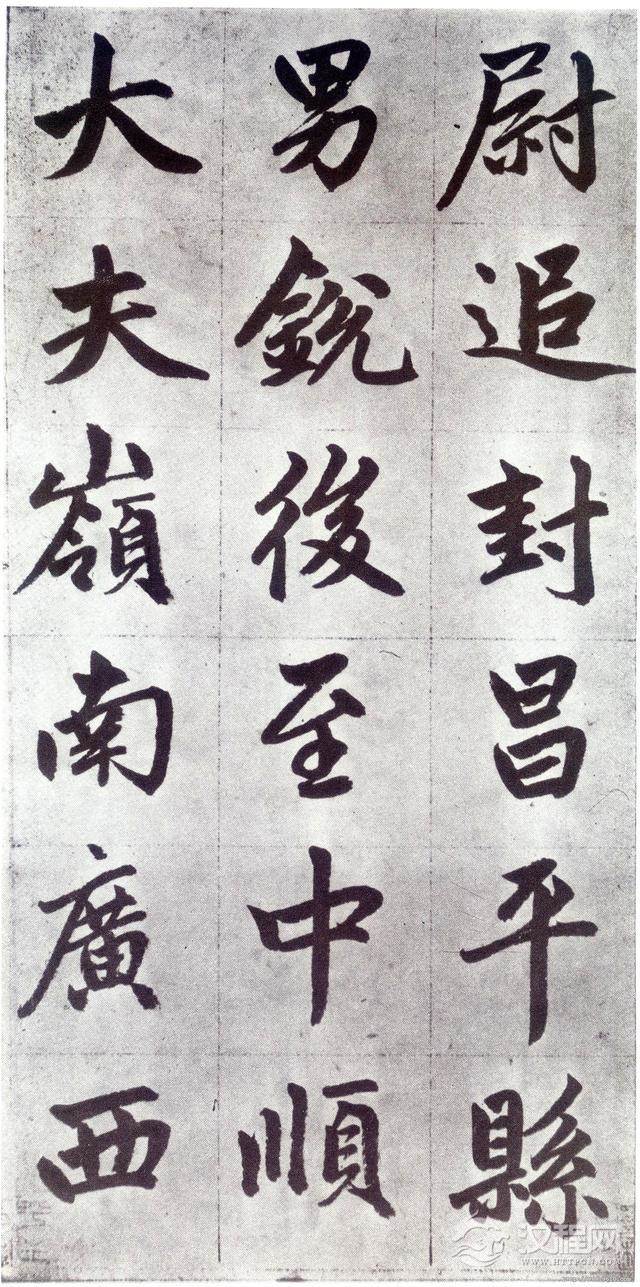 尉追封昌平縣
男銳後至中順
大夫嶺南廣西
汉程网
WWW.HTTPCN.COM